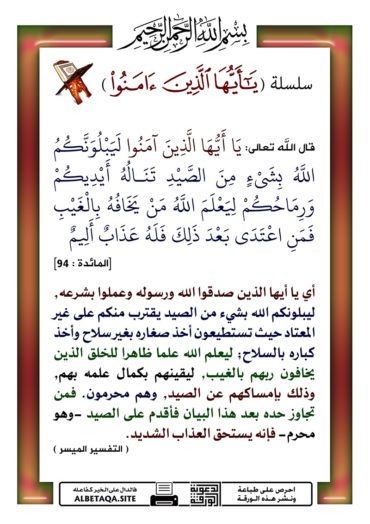 بسم الله الرحمن الرحيم
سلسلة ( يَٰٓأَيُّهَا ٱلَّذِينَ ءَامَنُوا۟ )
قال الله تعالى: يَا أَيُّهَا الَّذِينَ آمَنُوا لَيَبْلُوَنَّكُمُ
اللَّهُ بِشَيْءٍ مِنَ الصَّيْدِ تَنَالُهُ أَيْدِيكُمْ
وَرِمَاحُكُمْ لِيَعْلَمَ اللَّهُ مَنْ يَخَافُهُ بِالْغَيْبِ
فَمَنِ اعْتَدَى بَعْدَ ذَلِكَ فَلَهُ عَذَابٌ أَلِيمٌ
[المائدة : 94]
أي يا أيها الذين صدقوا الله ورسوله وعملوا بشرعه,
ليبلونكم الله بشيء من الصيد يقترب منكم على غير
المعتاد حيث تستطيعون أخذ صغاره بغير سلاح وأخذ
كباره بالسلاح; ليعلم الله علما ظاهرا للخلق الذين
يخافون ربهم بالغيب, ليقينهم بكمال علمه بهم,
وذلك بإمساكهم عن الصيد, وهم محرمون. فمن
تجاوز حده بعد هذا البيان فأقدم على الصيد -وهو
محرم- فإنه يستحق العذاب الشديد.
( التفسير الميسر )
احرص على طباعة
ونشر هذه الورقة
الدعوية
الورقة
فالدال على الخير كفاعله
ALBETAQA.SITE